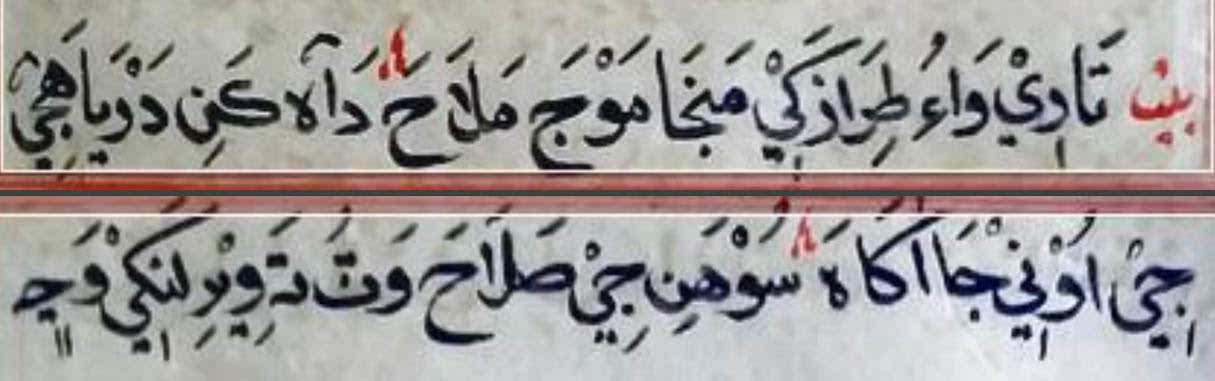 بيت تَارِيْ وَاءُ طِرَازِكَيْ مَنجَا مَوْجَ مَلَاحَ دَآه كَنِ دَرْيَاهِيْ
جِيْ اُوْنِيْ جَا اكَاهَ سُوْهَنِ جِيْ صَلَاحَ وَتُ تَہ وِيْرِ لنِكِيْ وَڃِ